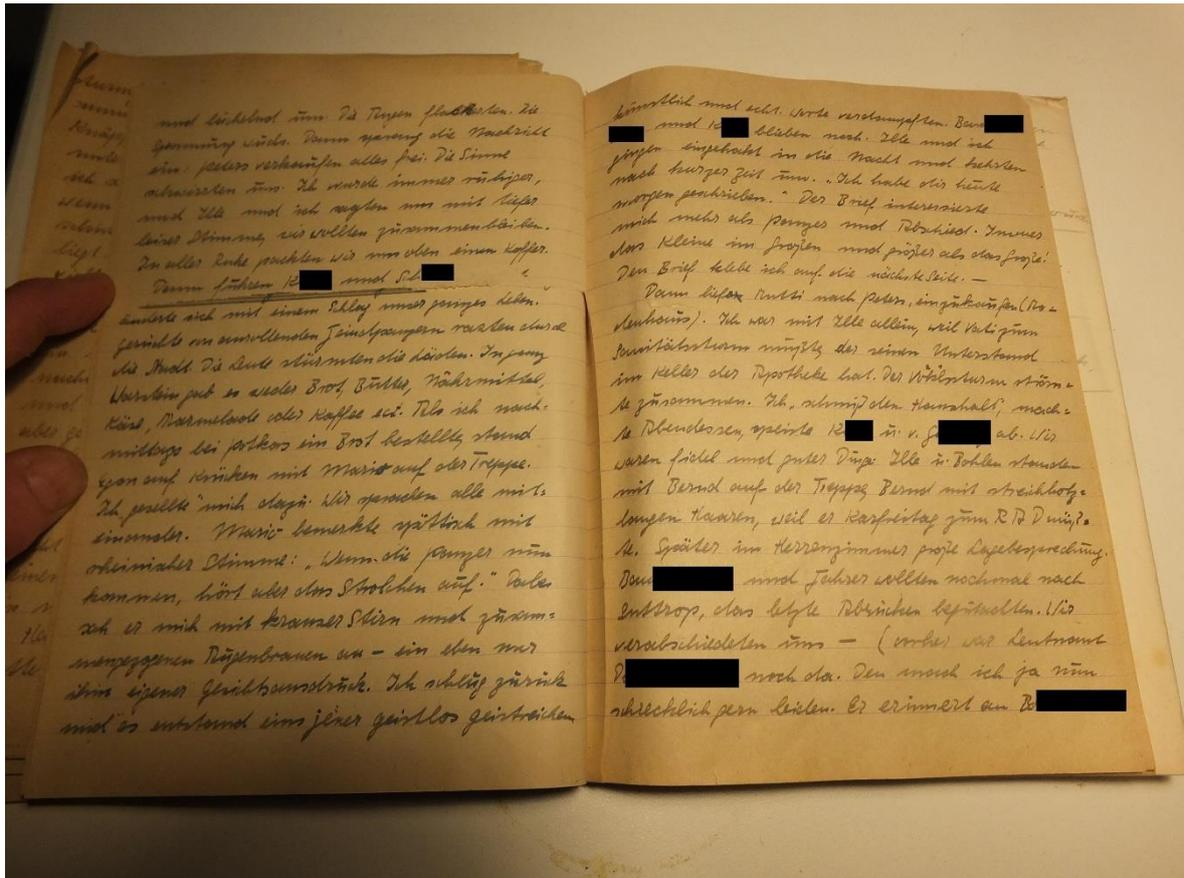 und lächelnd um. Die Augen flackerten. Die
Spannung wuchs. Dann sprang die Nachricht
ein: Peters verkaufen alles frei. Die Sinne
schwirrten uns. Ich wurde immer ruhiger,
und Ille und ich sagten uns mit tiefer
leiser Stimme, wir wollten zusammen bleiben.
In aller Ruhe packten wir uns oben einen Koffer.
Dann fuhren K und Sch
änderte sich mit einem Schlag unser ganzes Leben.
Gerüchte von anrollenden Feindpanzern rasten durch
die Stadt. Die Leute stürmten die Läden. In ganz
Warstein gab es weder Brot, Butter, Nährmittel,
Käse, Marmelade oder Kaffee ect. Als ich nach-
mittags bei Potkas ein Brot bestellte, stand
Egon auf Krücken mit Mario auf der Treppe.
Ich gesellte mich dazu. Wir sprachen alle mit-
einander. Mario bemerkte spöttisch mit
rheinischer Stimme: „Wenn die Panzer nun
kommen, hört aber das Strolchen auf." Dabei
sah er mich mit krauser Stirn und zusam-
mengezogenen Augenbrauen an – ein eben nur
ihm eigener Gesichtsausdruck. Ich schlug zurück
und es entstand eins jener geistlos geistreichen
künstlich und echt. Worte verdampften. Bau
und K blieben noch. Ille und ich
gingen eingehakt in die Nacht und kehrten
nach kurzer Zeit um. „Ich habe dir heute
morgen geschrieben." Der Brief interessierte
mich mehr als Panzer und Abschied. Immer
das Kleine im Großen und größer als das Große!
Den Brief klebe ich auf die nächste Seite. —
Dann lief Mutti nach Peters, einzukaufen (Mo-
denhaus). Ich war mit Ille allein, weil Vati zum
Sanitätssturm mußte, der seinen Unterstand
im Keller der Apotheke hat. Der Volkssturm ström-
te zusammen. Ich „schmiß den Haushalt", mach-
te Abendessen, speiste K u. v. G ab. Wir
waren fidel und guter Dinge. Ille u. Bohlen standen
mit Bernd auf der Treppe, Bernd mit streichholz-
langen Haaren, weil er Karfreitag zum R A D muß-
te. Später im Herrenzimmer große Lagebesprechung.
Bau und Jahrer wollten nochmal nach
das letzte Abrücken begutachten. Wir
verabschiedeten uns — (vorher war Leutnant
D noch da. Den mach ich ja nun
schrecklich gern leiden. Er erinnert an Bo